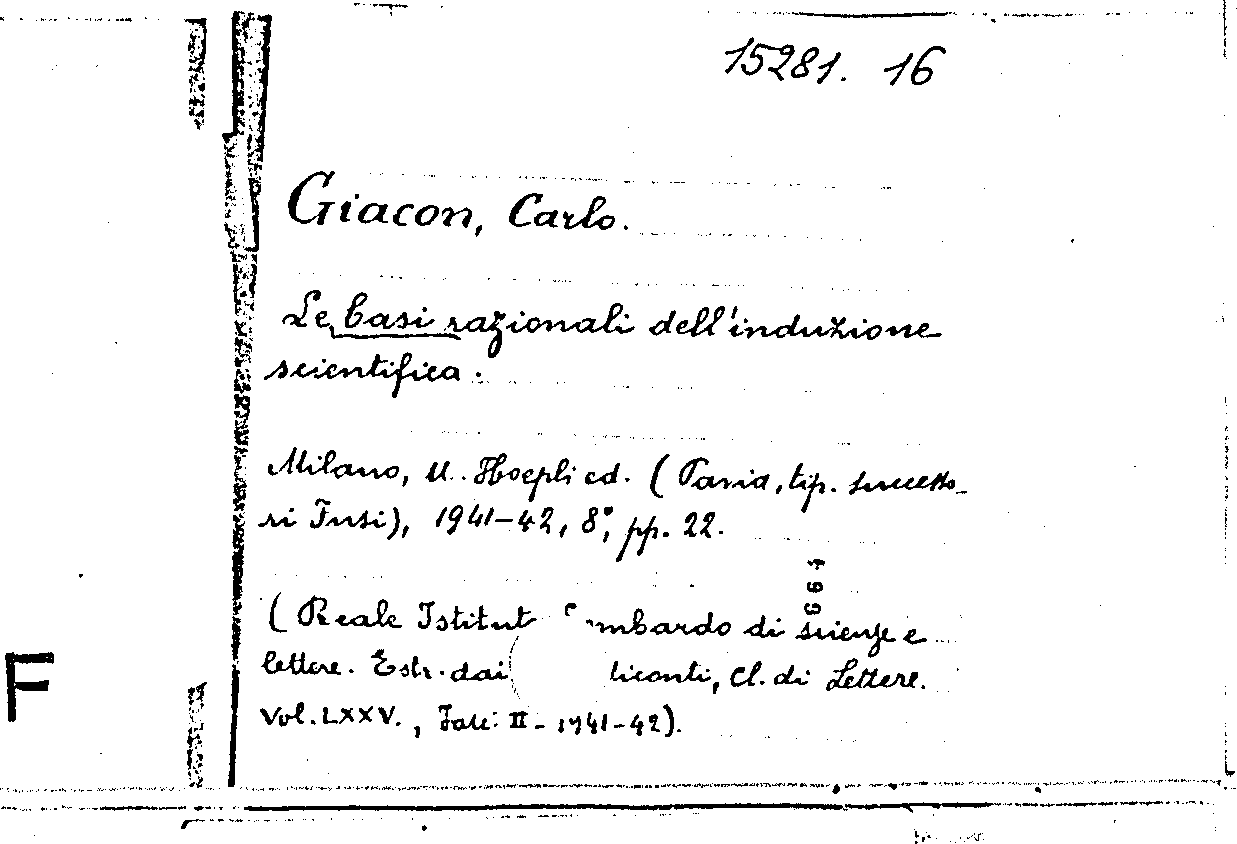 15281. 16
Giacon, Carlo.
Le basi razionali dell'induzione
scientifica.
Milano, U. Hoepli ed. (Pavia, tip. successo-
ri Fusi), 1941-42, 8°, pp. 22.
664
(Reale Istitut mbardo di scienze e
lettere. Estr. dai diconti, Cl. di Lettere.
Vol. LXXV., Fasc. II - 1941-42).
F